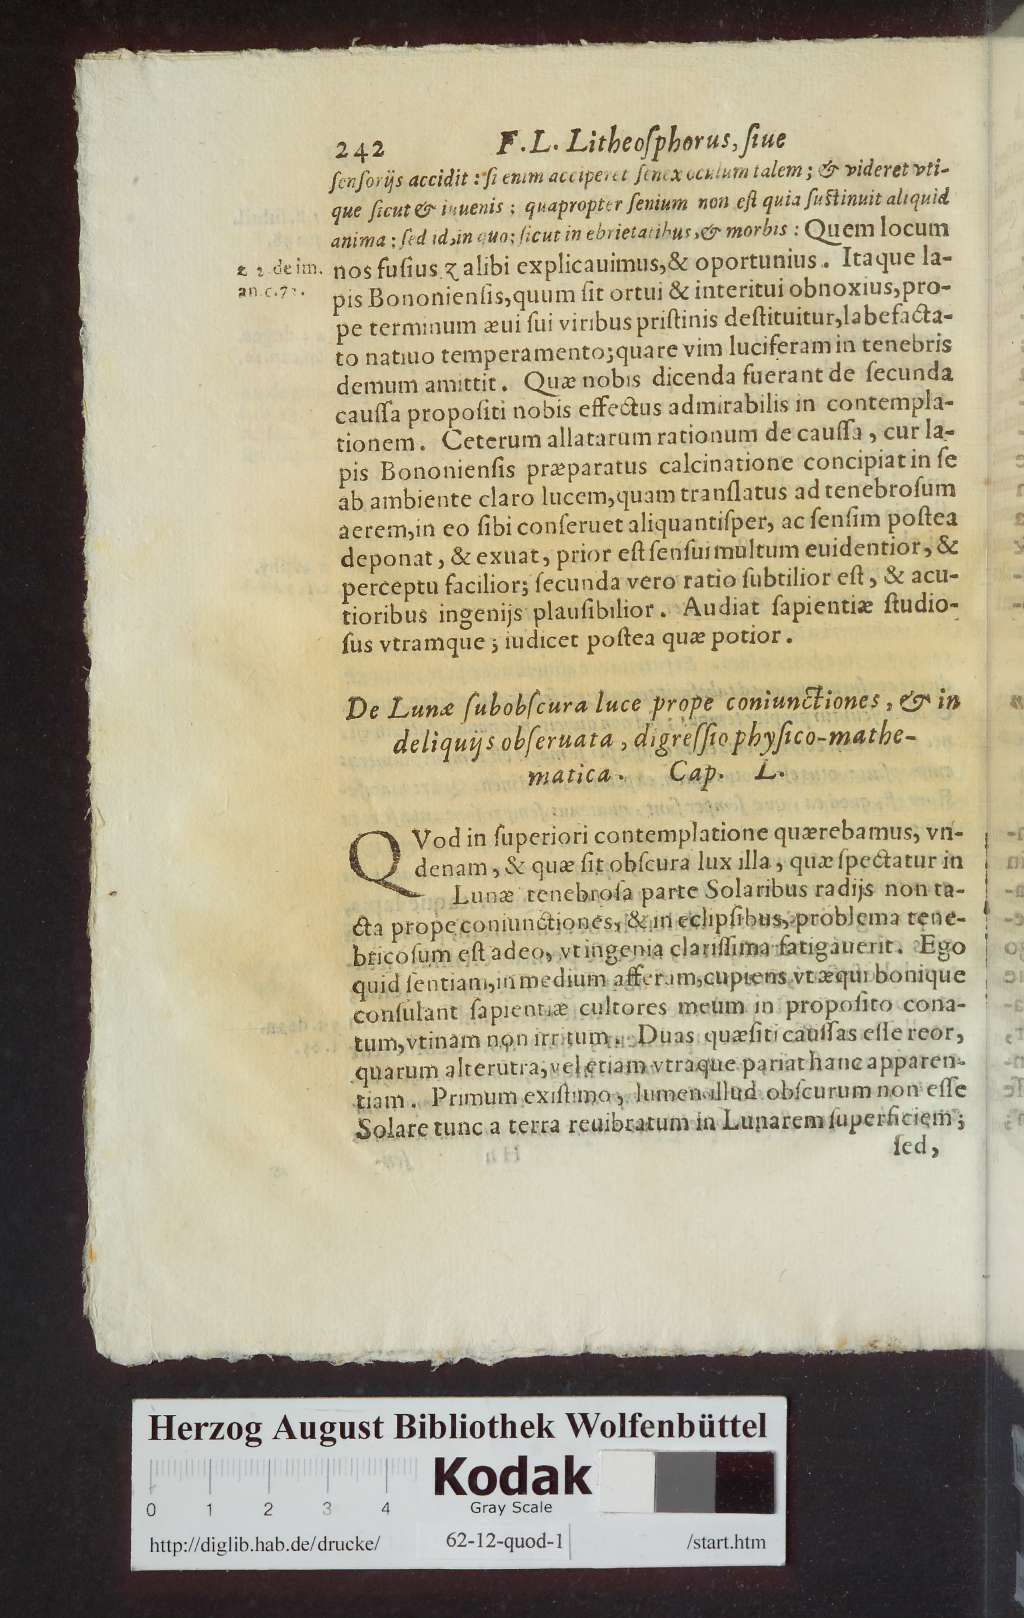 242 F. L. Litheoſphorus, ſiue
ſenſorijs accidit : ſi enim acciperet ſenex oculum talem ; & videret vti-
que ſicut & iuuenis ; quapropter ſenium non eſt quia ſuſtinuit aliquid
anima ; ſed id, in quo; ſicut in ebrietatibus, & morbis : Quem locum
z 2. de im.
an. c. 72.
nos fuſius z alibi explicauimus, & oportunius. Itaque la-
pis Bononienſis, quum ſit ortui & interitui obnoxius, pro-
pe terminum æui ſui viribus priſtinis deſtituitur, labefacta-
to natiuo temperamento; quare vim luciferam in tenebris
demum amittit. Quæ nobis dicenda fuerant de ſecunda
cauſſa propoſiti nobis effectus admirabilis in contempla-
tionem. Ceterum allatarum rationum de cauſſa, cur la-
pis Bononienſis præparatus calcinatione concipiat in ſe
ab ambiente claro lucem, quam tranſlatus ad tenebroſum
aerem, in eo ſibi conſeruet aliquantiſper, ac ſenſim poſtea
deponat, & exuat, prior eſt ſenſui multum euidentior, &
perceptu facilior; ſecunda vero ratio ſubtilior eſt, & acu-
tioribus ingenijs plauſibilior. Audiat ſapientiæ ſtudio-
ſus vtramque ; iudicet poſtea quæ potior.
De Lunæ ſubobſcura luce prope coniunctiones, & in
deliquijs obſeruata, digreſſio phyſico-mathe-
matica. Cap. L.
QVod in ſuperiori contemplatione quærebamus, vn-
denam, & quæ ſit obſcura lux illa, quæ ſpectatur in
Lunæ tenebroſa parte Solaribus radijs non ta-
cta prope coniunctiones, & in eclipſibus, problema tene-
bricoſum eſt adeo, vt ingenia clariſſima fatigauerit. Ego
quid ſentiam, in medium afferam, cupiens vt æqui bonique
conſulant ſapientiæ cultores meum in propoſito cona-
tum, vtinam non irritum. Duas quæſiti cauſſas eſſe reor,
quarum alterutra, vel etiam vtraque pariat hanc apparen-
tiam. Primum exiſtimo, lumen illud obſcurum non eſſe
Solare tunc a terra reuibratum in Lunarem ſuperficiem ;
ſed,
Herzog August Bibliothek Wolfenbüttel
Kodak
Gray Scale
0 1 2 3 4
http://diglib.hab.de/drucke/ 62-12-quod-1 /start.htm